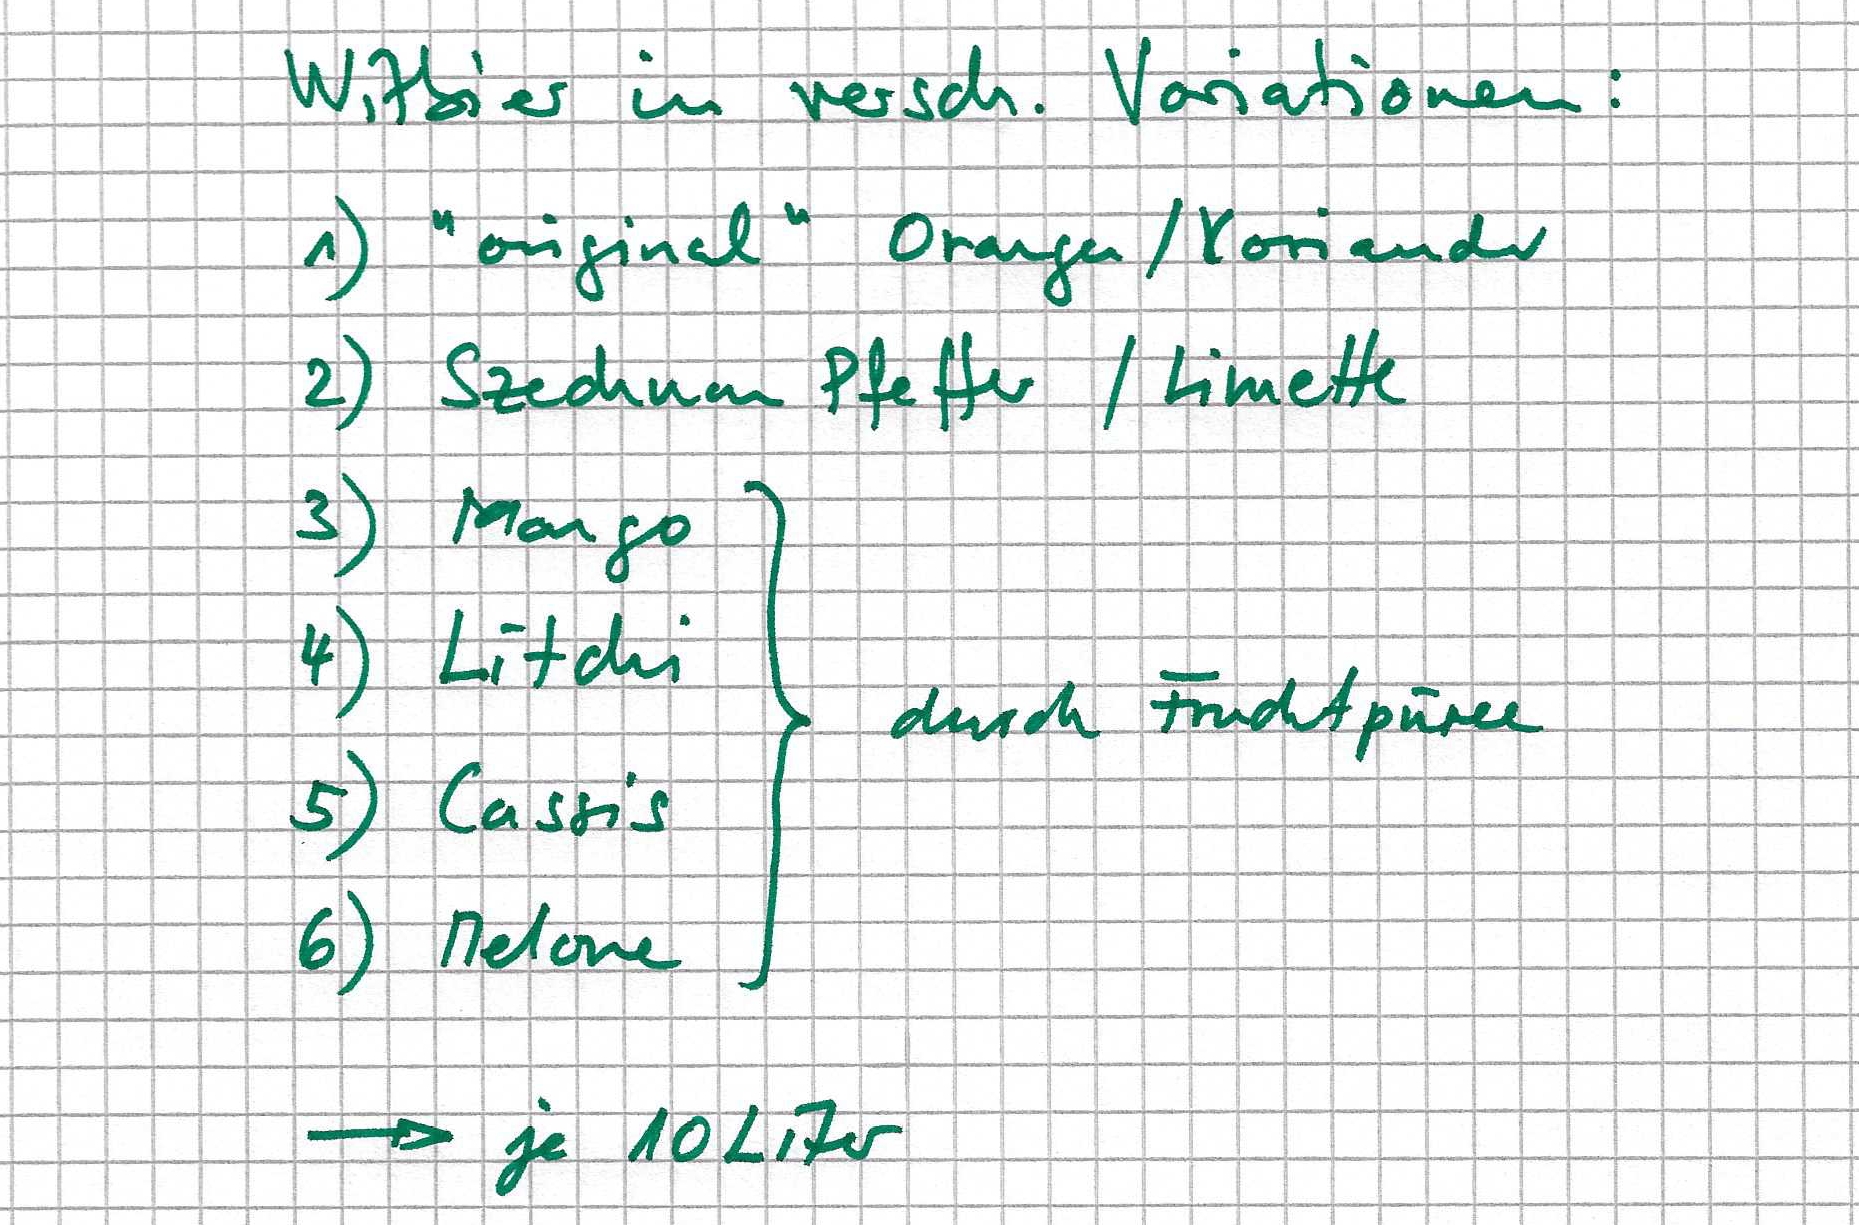 Witbier in versch. Variationen:
1) "original" Orangen/Koriander
2) Szechuan Pfeffer / Limette
3) Mango
4) Litchi
durch Fruchtpüree
5) Cassis
6) Melone
→ je 10 Liter